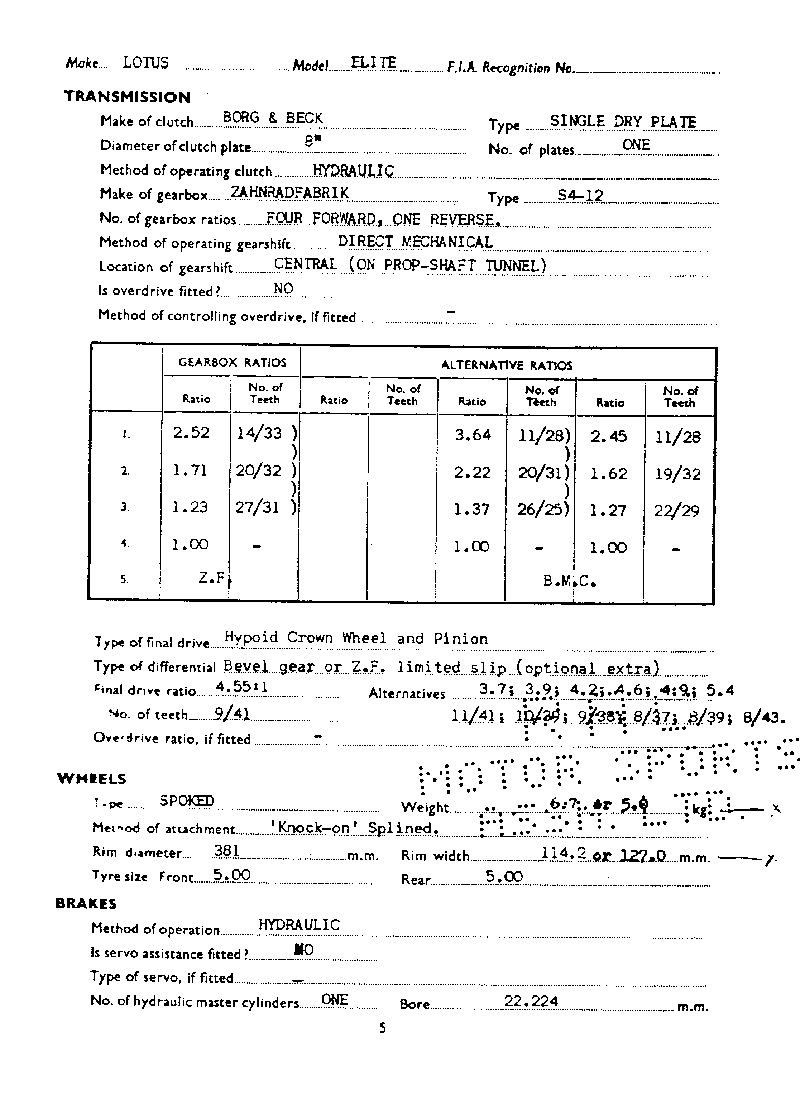 Make LOTUS Model ELITE F.I.A. Recognition No.
TRANSMISSION
Make of clutch BORG & BECK Type SINGLE DRY PLATE
Diameter of clutch plate 8" No. of plates ONE
Method of operating clutch HYDRAULIC
Make of gearbox ZAHNRADFABRIK Type S4-12
No. of gearbox ratios FOUR FORWARD, ONE REVERSE.
Method of operating gearshift DIRECT MECHANICAL
Location of gearshift CENTRAL (ON PROP-SHAFT TUNNEL)
Is overdrive fitted? NO
Method of controlling overdrive, if fitted -
GEARBOX RATIOS ALTERNATIVE RATIOS
Ratio No. of Teeth Ratio No. of Teeth Ratio No. of Teeth Ratio No. of Teeth
1. 2.52 14/33 ) 3.64 11/28) 2.45 11/28
) )
2. 1.71 20/32 ) 2.22 20/31) 1.62 19/32
) )
3. 1.23 27/31 ) 1.37 26/25) 1.27 22/29
4. 1.00 - 1.00 - 1.00 -
5. Z.F. B.M.C.
Type of final drive Hypoid Crown Wheel and Pinion
Type of differential Bevel gear or Z.F. limited slip (optional extra)
Final drive ratio 4.55:1 Alternatives 3.7; 3.9; 4.2; 4.6; 4.9; 5.4
No. of teeth 9/41 11/41; 10/39; 9/38; 8/37; 8/39; 8/43.
Overdrive ratio, if fitted -
MOTOR SPORTS
WHEELS
Type SPOKED Weight 6.7 or 5.0 kg. x
Method of attachment 'Knock-on' Splined.
Rim diameter 381 m.m. Rim width 114.2 or 127.0 m.m.
Tyre size Front 5.00 Rear 5.00
BRAKES
Method of operation HYDRAULIC
Is servo assistance fitted? NO
Type of servo, if fitted -
No. of hydraulic master cylinders ONE Bore 22.224 m.m.
5